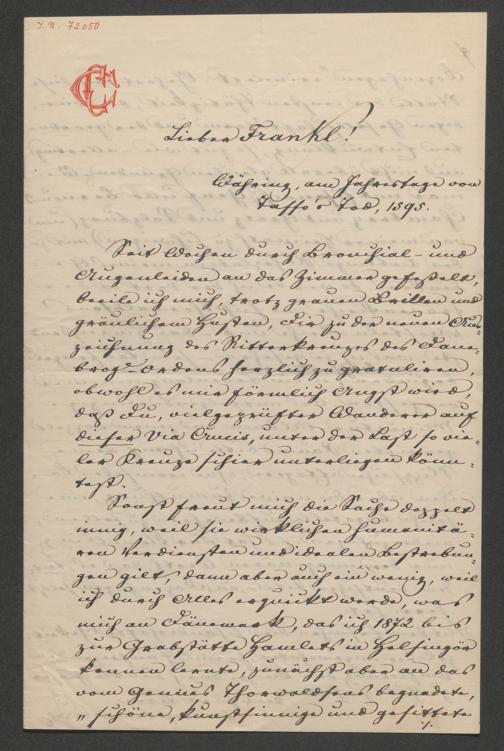 I. N. 72050
Lieber Frankl!
Währing, am Jahrestage von
Tasso's Tod, 1595.
Seit Wochen durch Bronchial- und
Augenleiden an das Zimmer gefeßelt,
beeile ich mich, trotz grauen Brillen und
gräulichem Husten, Dir zu der neuen Aus-
zeichnung des Ritterkreuzes des Dane-
brog-Ordens herzlich zu gratuliren,
obwohl es mir förmlich Angst wird
daß Du, vielgeprüfter Wanderer auf
dieser Via Crucis, unter der Last so vie-
ler Kreuze schier unterliegen könn-
test.
Sonst freut mich die Sache doppelt
innig, weil sie wirklichen humanitä-
ren Verdiensten und idealen Bestrebun-
gen gilt, dann aber auch ein wenig, weil
ich durch Alles erquickt werde, was
mich an Dänemark, das ich 1872 bis
zur Grabstätte Hamlets in Helsingör
kennen lernte, zunächst aber an das
vom Genius Thorwaldsens begnadete,
"schöne, kunstsinnige und gesittete
./.